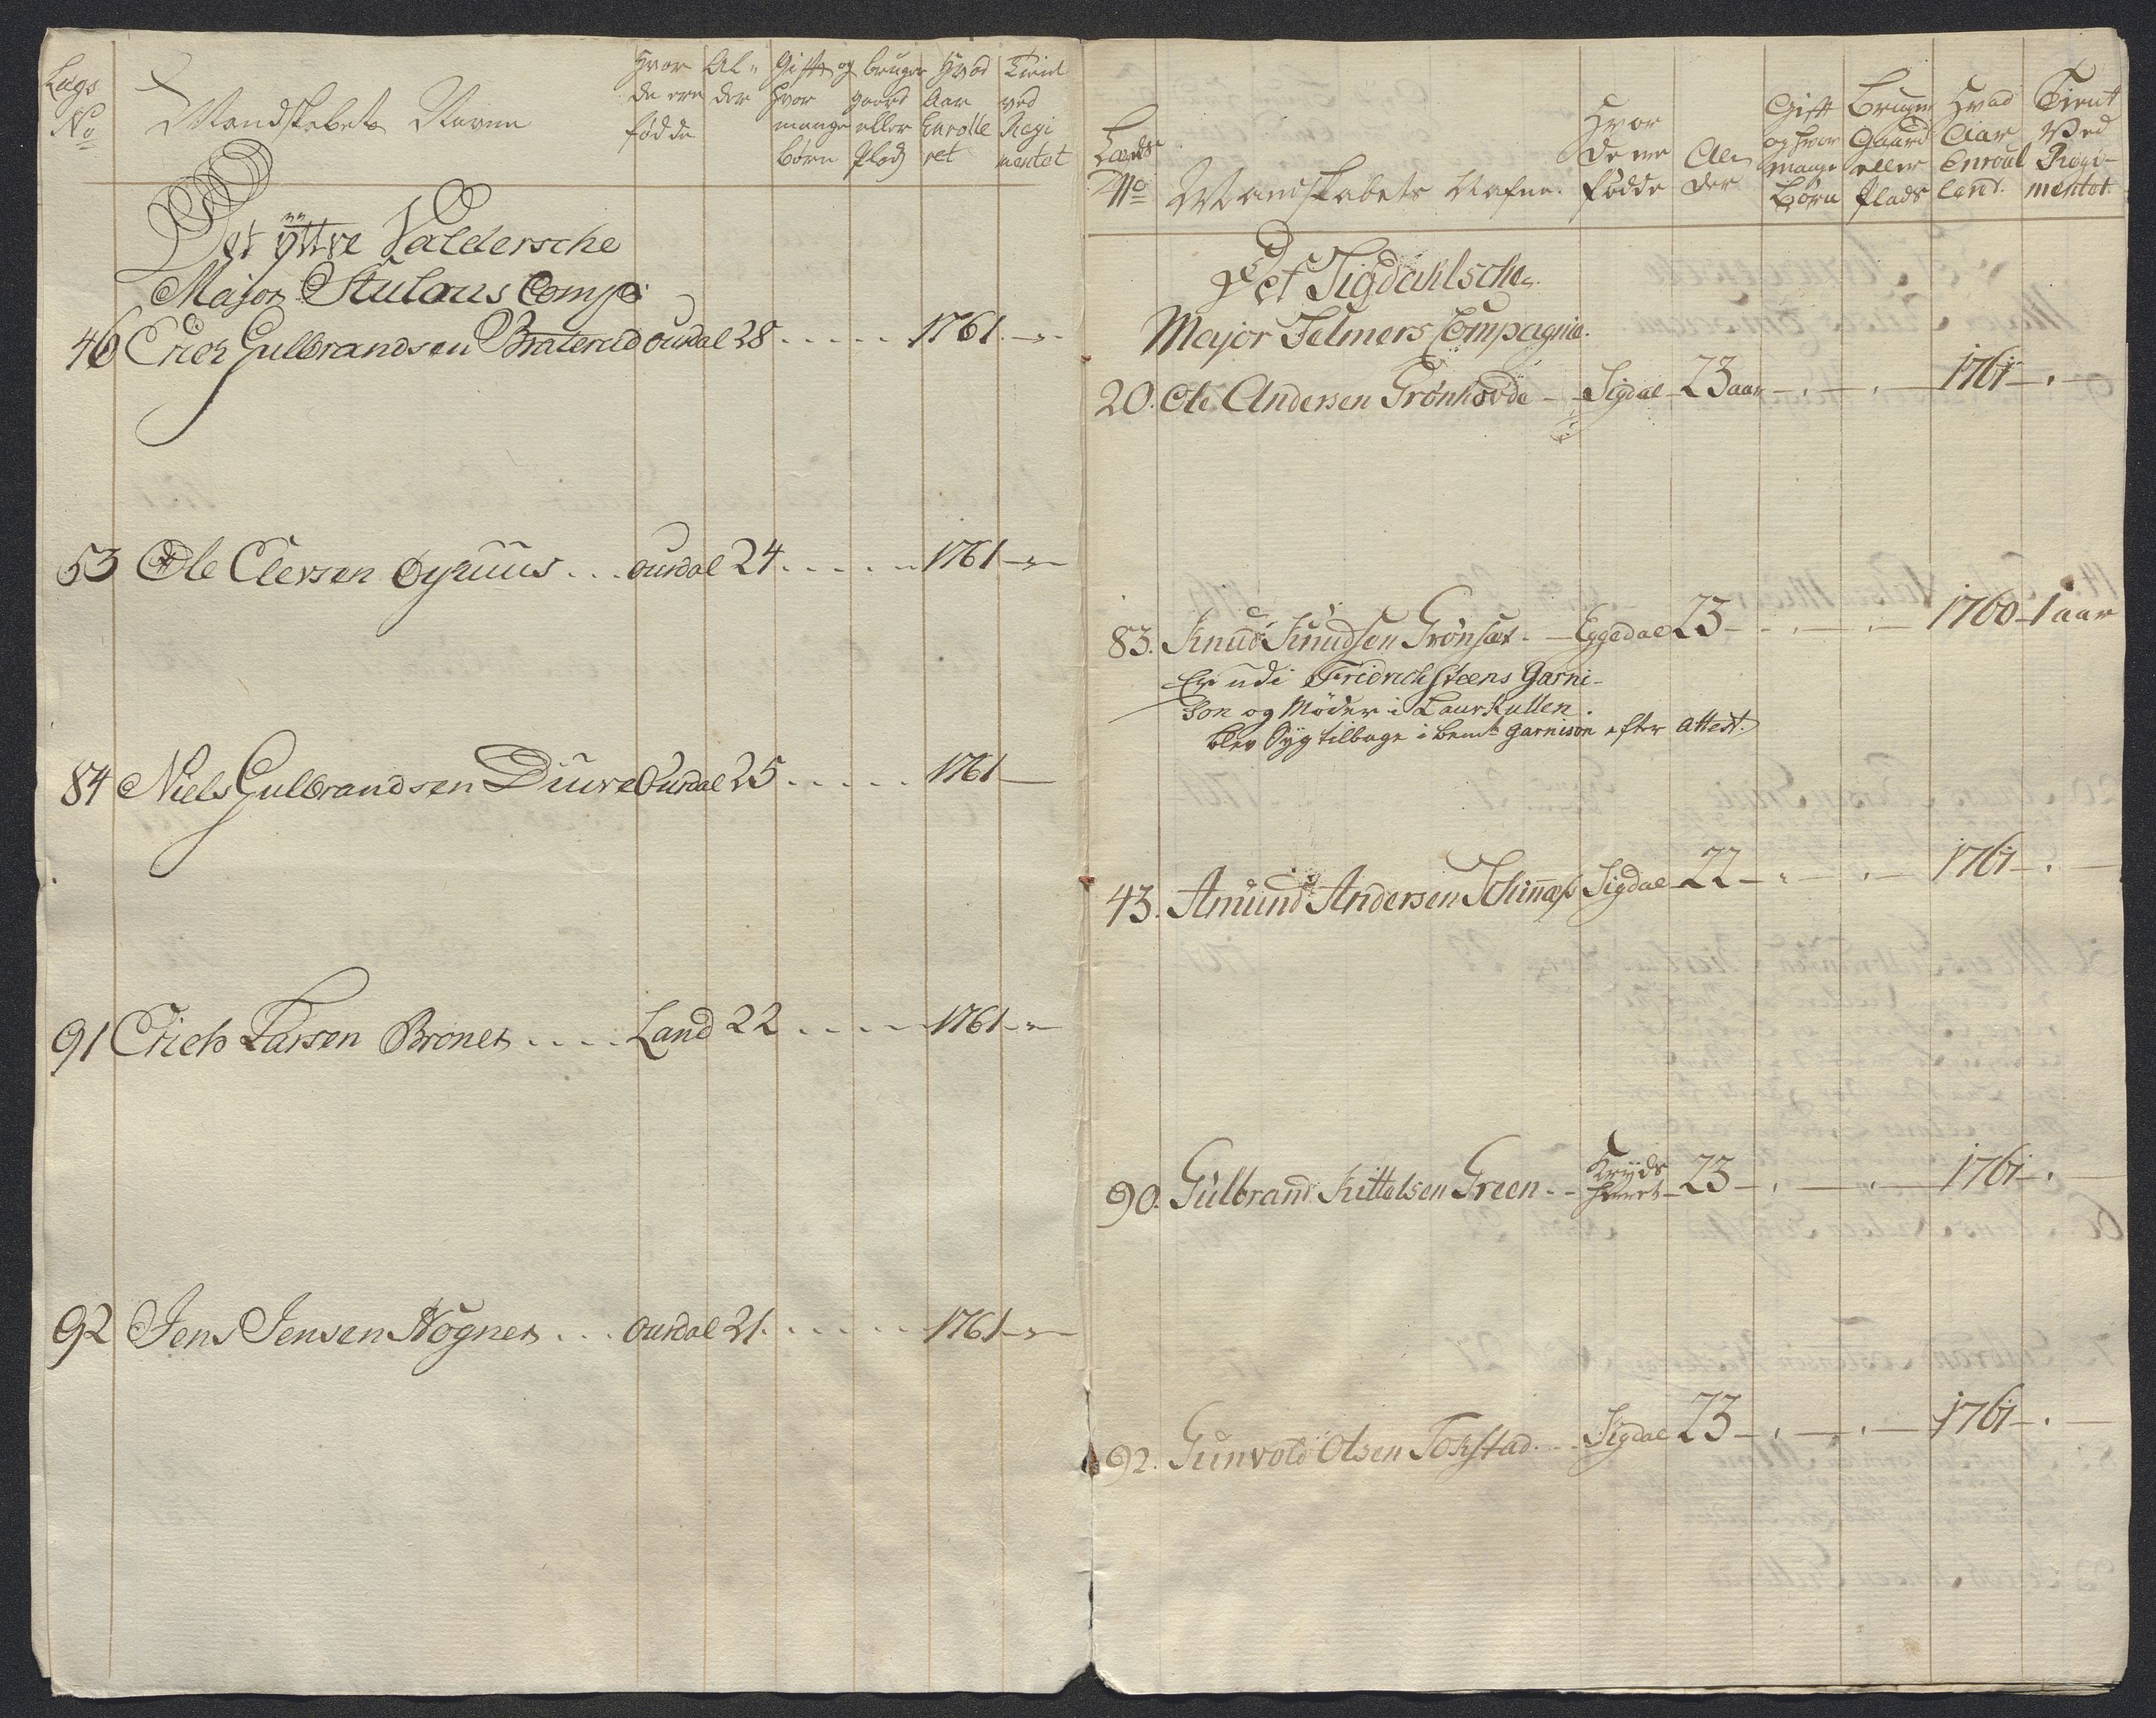 Lægs No
Mandskabets Navne
Hvor de ere fødde
Al- der
Gift og hvor mange børn
bruger gaard eller Plads
Hvad Aar Enrolleret
Tient ved Regimentet
Det ÿttre Valdersche
Major Stulous Comp:
46 Erich Gulbrandsen Braterud ourdal 28 - - - - - 1761 - -
53 Ole Olersen Øyuus . . . ourdal 24 - - - - - 1761 - -
84 Niels Gulbrandsen Diure Ourdal 25 - - - - - 1761 -
91 Erich Larsen Broner - - - - Land 22 - - - - 1761 - -
92 Jens Jensen Høgner . . . ourdal 21 - - - - - 1761 - -
Lægds No
Mandskabets Nafne.
Hvor de ere fødde
Al- der
Gift og hvor mange Børn
Bruger Gaard eller Plads
Hvad Aar Enroulleret.
Tient Ved Regi- mentet.
Det Sigdahlsche
Major Felmers Compagnie.
20. Ole Andersen Grønhovde - Sigdal 23 aar - . - . - 1761 - . -
83. Knud Knudsen Grønset - Eggedal 23 - . - . - 1760 - 1 aar
Er udi Fridrichsteens Garni-
son og Møder i Laurkullen.
blev Syg tilbage i bemte Garnison efter Attest.
43. Amund Andersen Schinnes Sigdal 22 - . - . - 1761 - . -
90. Gulbrand Kittelsen Green - - Kryds herret 23 - . - . - 1761 - . -
92. Gunvold Olsen Tokstad - - Sigdal 23 - . - . - 1761 - . -